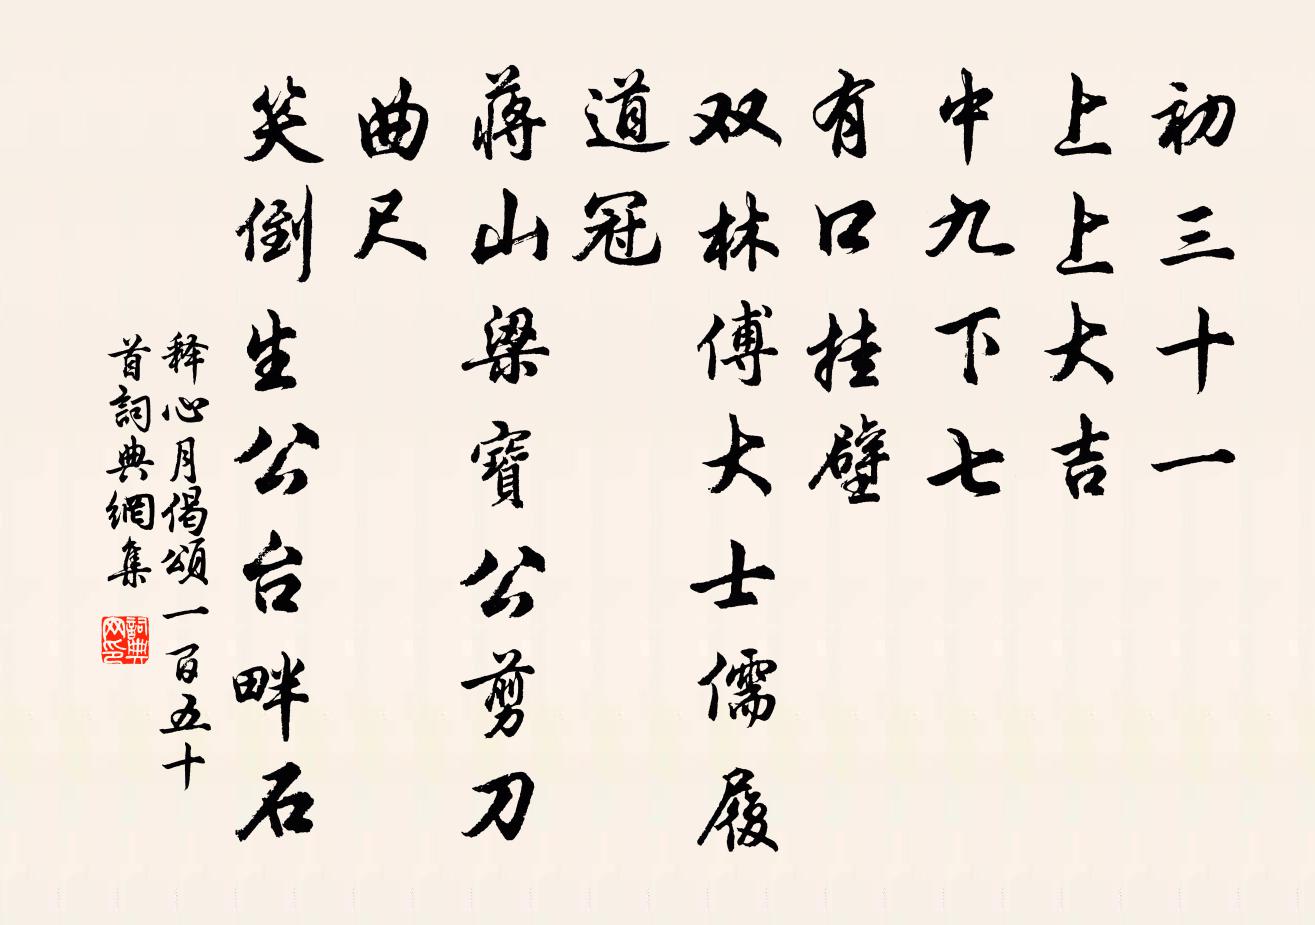 初三十一
上上大吉
中九下七
有口挂壁
双林傅大士儒履
道冠
蒋山梁寶公剪刀
曲尺
笑倒生公台畔石
释心月偈頌一百五十
首詞典網集
詞典网印